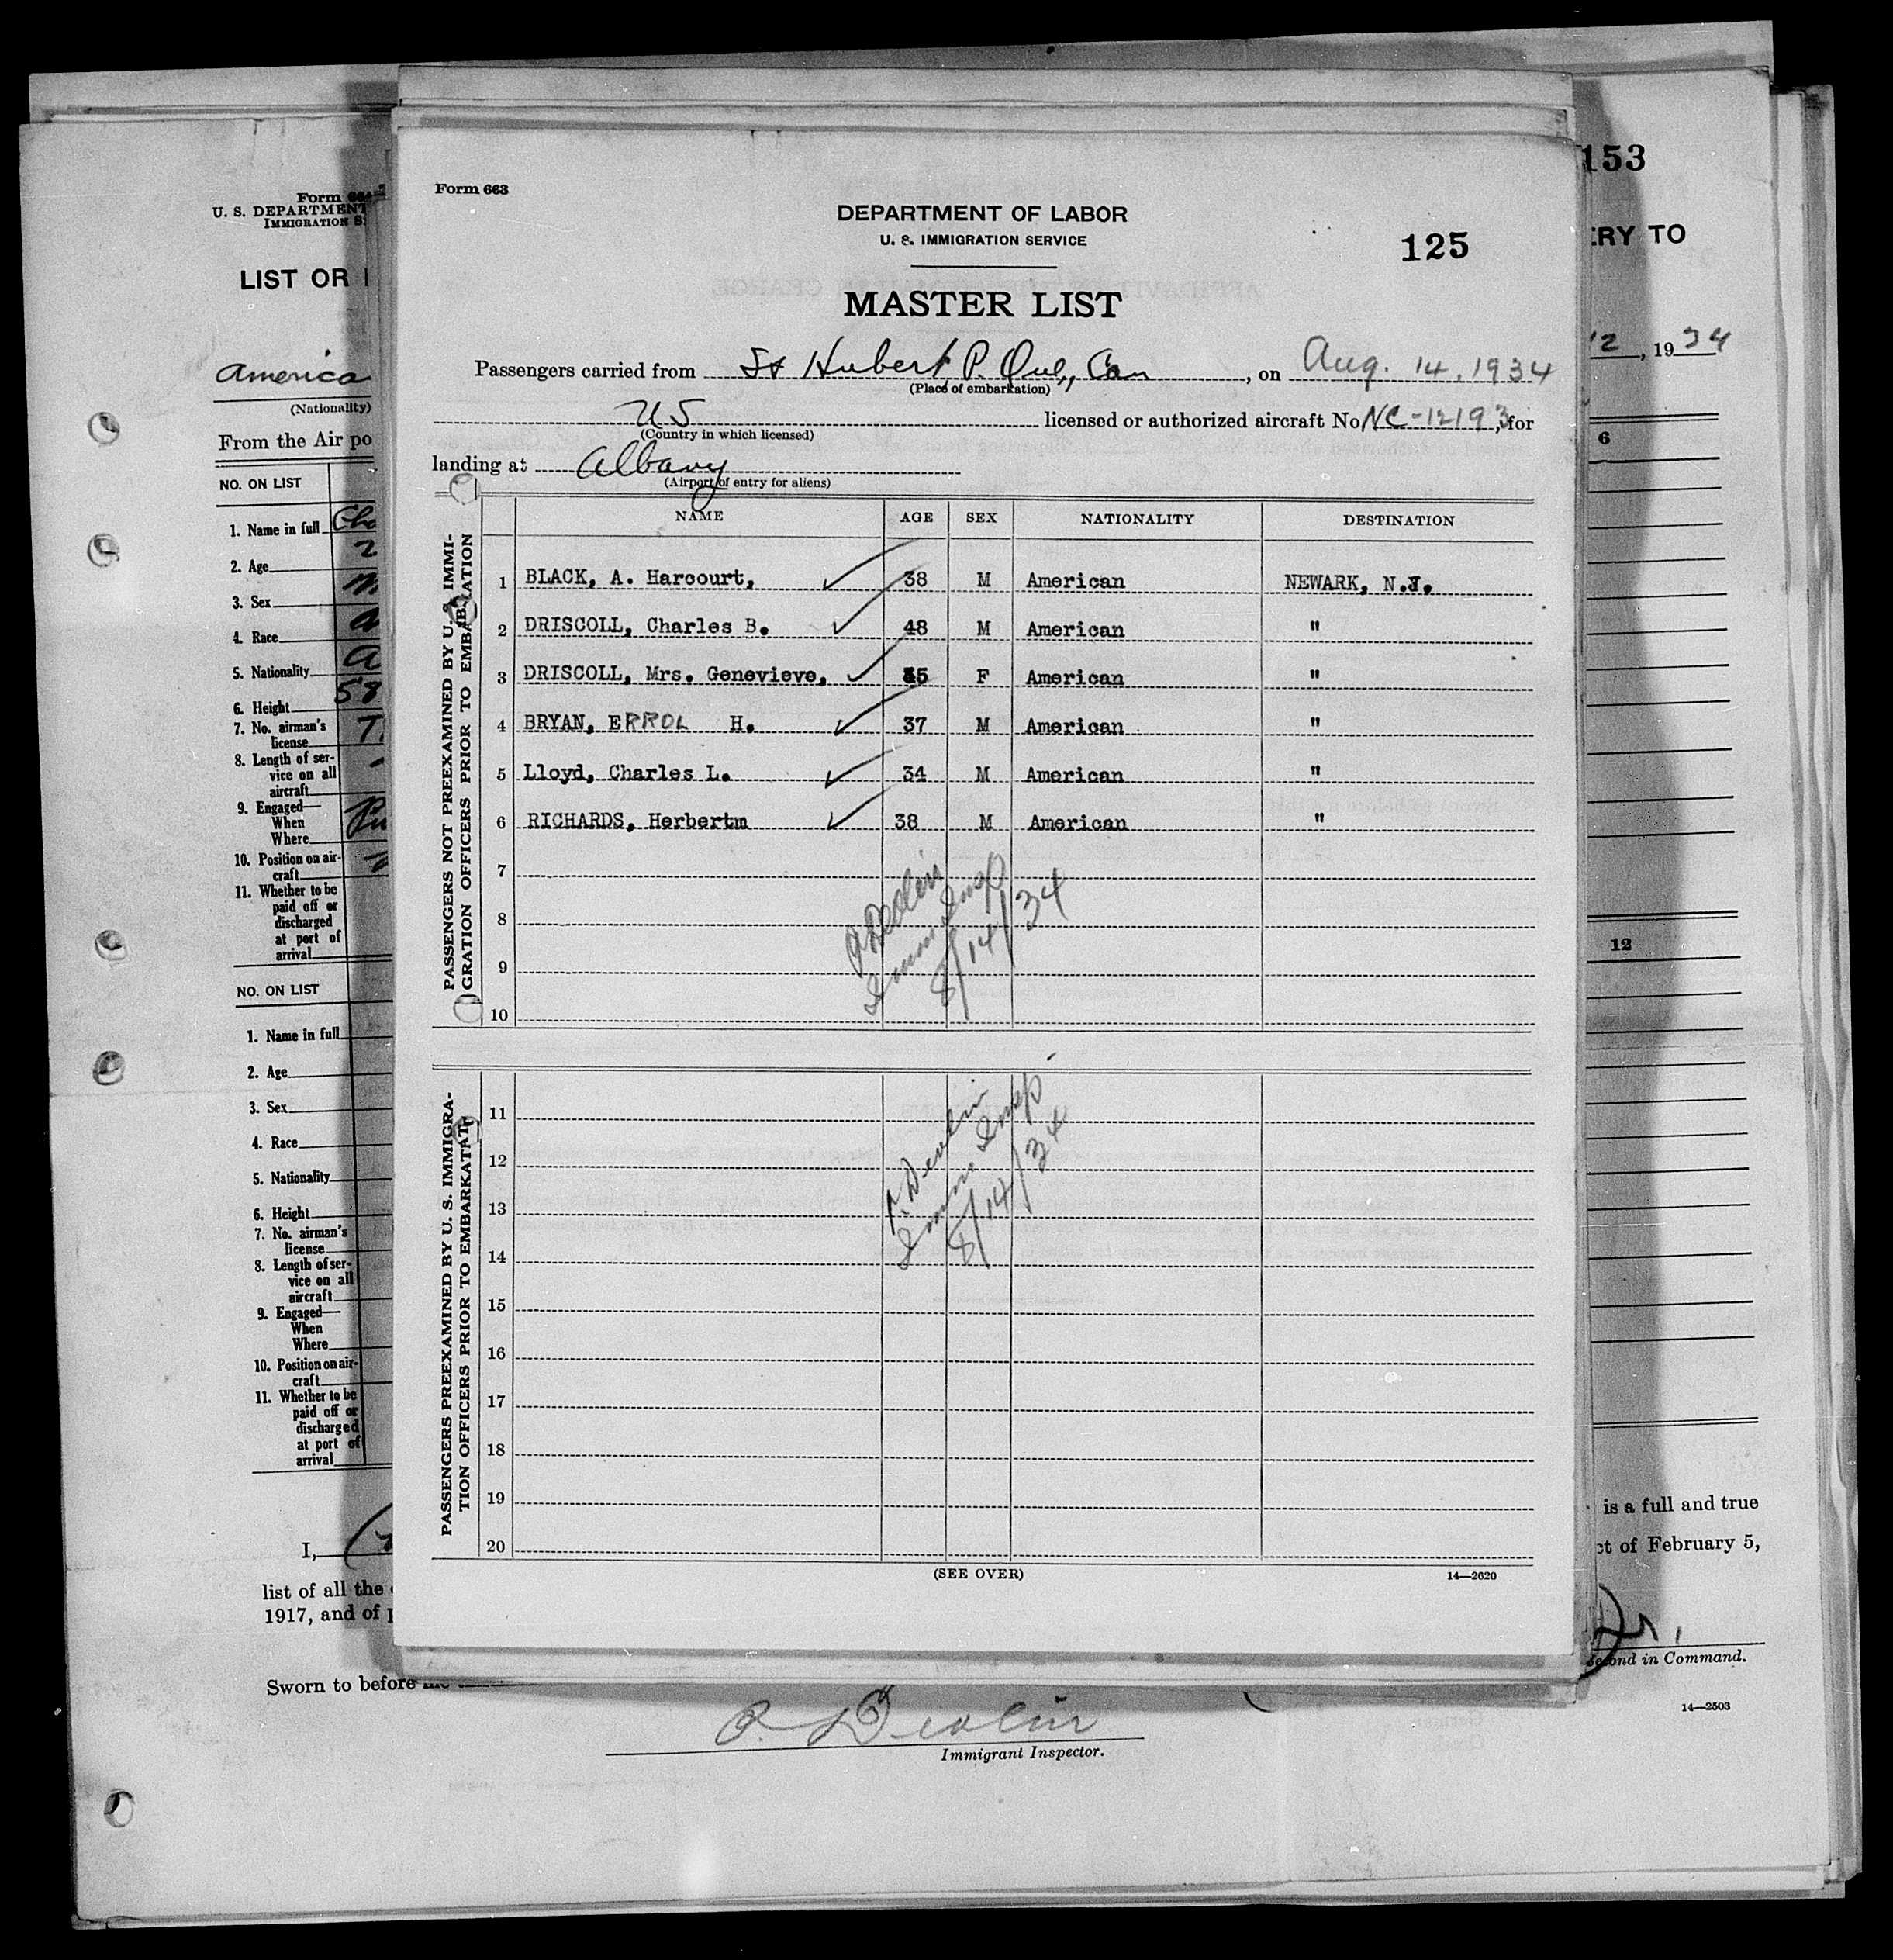 Form 663
DEPARTMENT OF LABOR
U. S. IMMIGRATION SERVICE
125
MASTER LIST
Passengers carried from St Hubert P. Que., Can, on Aug. 14, 1934
(Place of embarkation)
US licensed or authorized aircraft No. NC-12193, for
(Country in which licensed)
landing at Albany
(Airport of entry for aliens)
NAME AGE SEX NATIONALITY DESTINATION
PASSENGERS NOT PREEXAMINED BY U. S. IMMI-
GRATION OFFICERS PRIOR TO EMBARKATION
1 BLACK, A. Harcourt, 38 M American NEWARK, N.J.
2 DRISCOLL, Charles B. 48 M American "
3 DRISCOLL, Mrs. Genevieve, 35 F American "
4 BRYAN, ERROL H. 37 M American "
5 Lloyd, Charles L. 34 M American "
6 RICHARDS, Herbertm 38 M American "
7
8
9
10
P. Devlin
Imm Insp
8/14/34
PASSENGERS PREEXAMINED BY U. S. IMMIGRA-
TION OFFICERS PRIOR TO EMBARKATAT
11
12
13
14
15
16
17
18
19
20
P. Devlin
Imm Insp
8/14/34
(SEE OVER)
14—2620
Form
U. S. DEPARTMENT
IMMIGRATION S
LIST OR
America
(Nationality)
From the Air po
NO. ON LIST
1. Name in full Cha
2. Age 2
3. Sex M
4. Race
5. Nationality A
6. Height 58
7. No. airman's
license T
8. Length of ser-
vice on all
aircraft
9. Engaged—
When
Where
10. Position on air-
craft
11. Whether to be
paid off or
discharged
at port of
arrival
NO. ON LIST
1. Name in full
2. Age
3. Sex
4. Race
5. Nationality
6. Height
7. No. airman's
license
8. Length of ser-
vice on all
aircraft
9. Engaged—
When
Where
10. Position on air-
craft
11. Whether to be
paid off or
discharged
at port of
arrival
I,
list of all the
1917, and of
Sworn to before me
P. Devlin
Immigrant Inspector.
153
ERY TO
12, 1934
6
12
is a full and true
ct of February 5,
Jr.
Second in Command.
14—2503